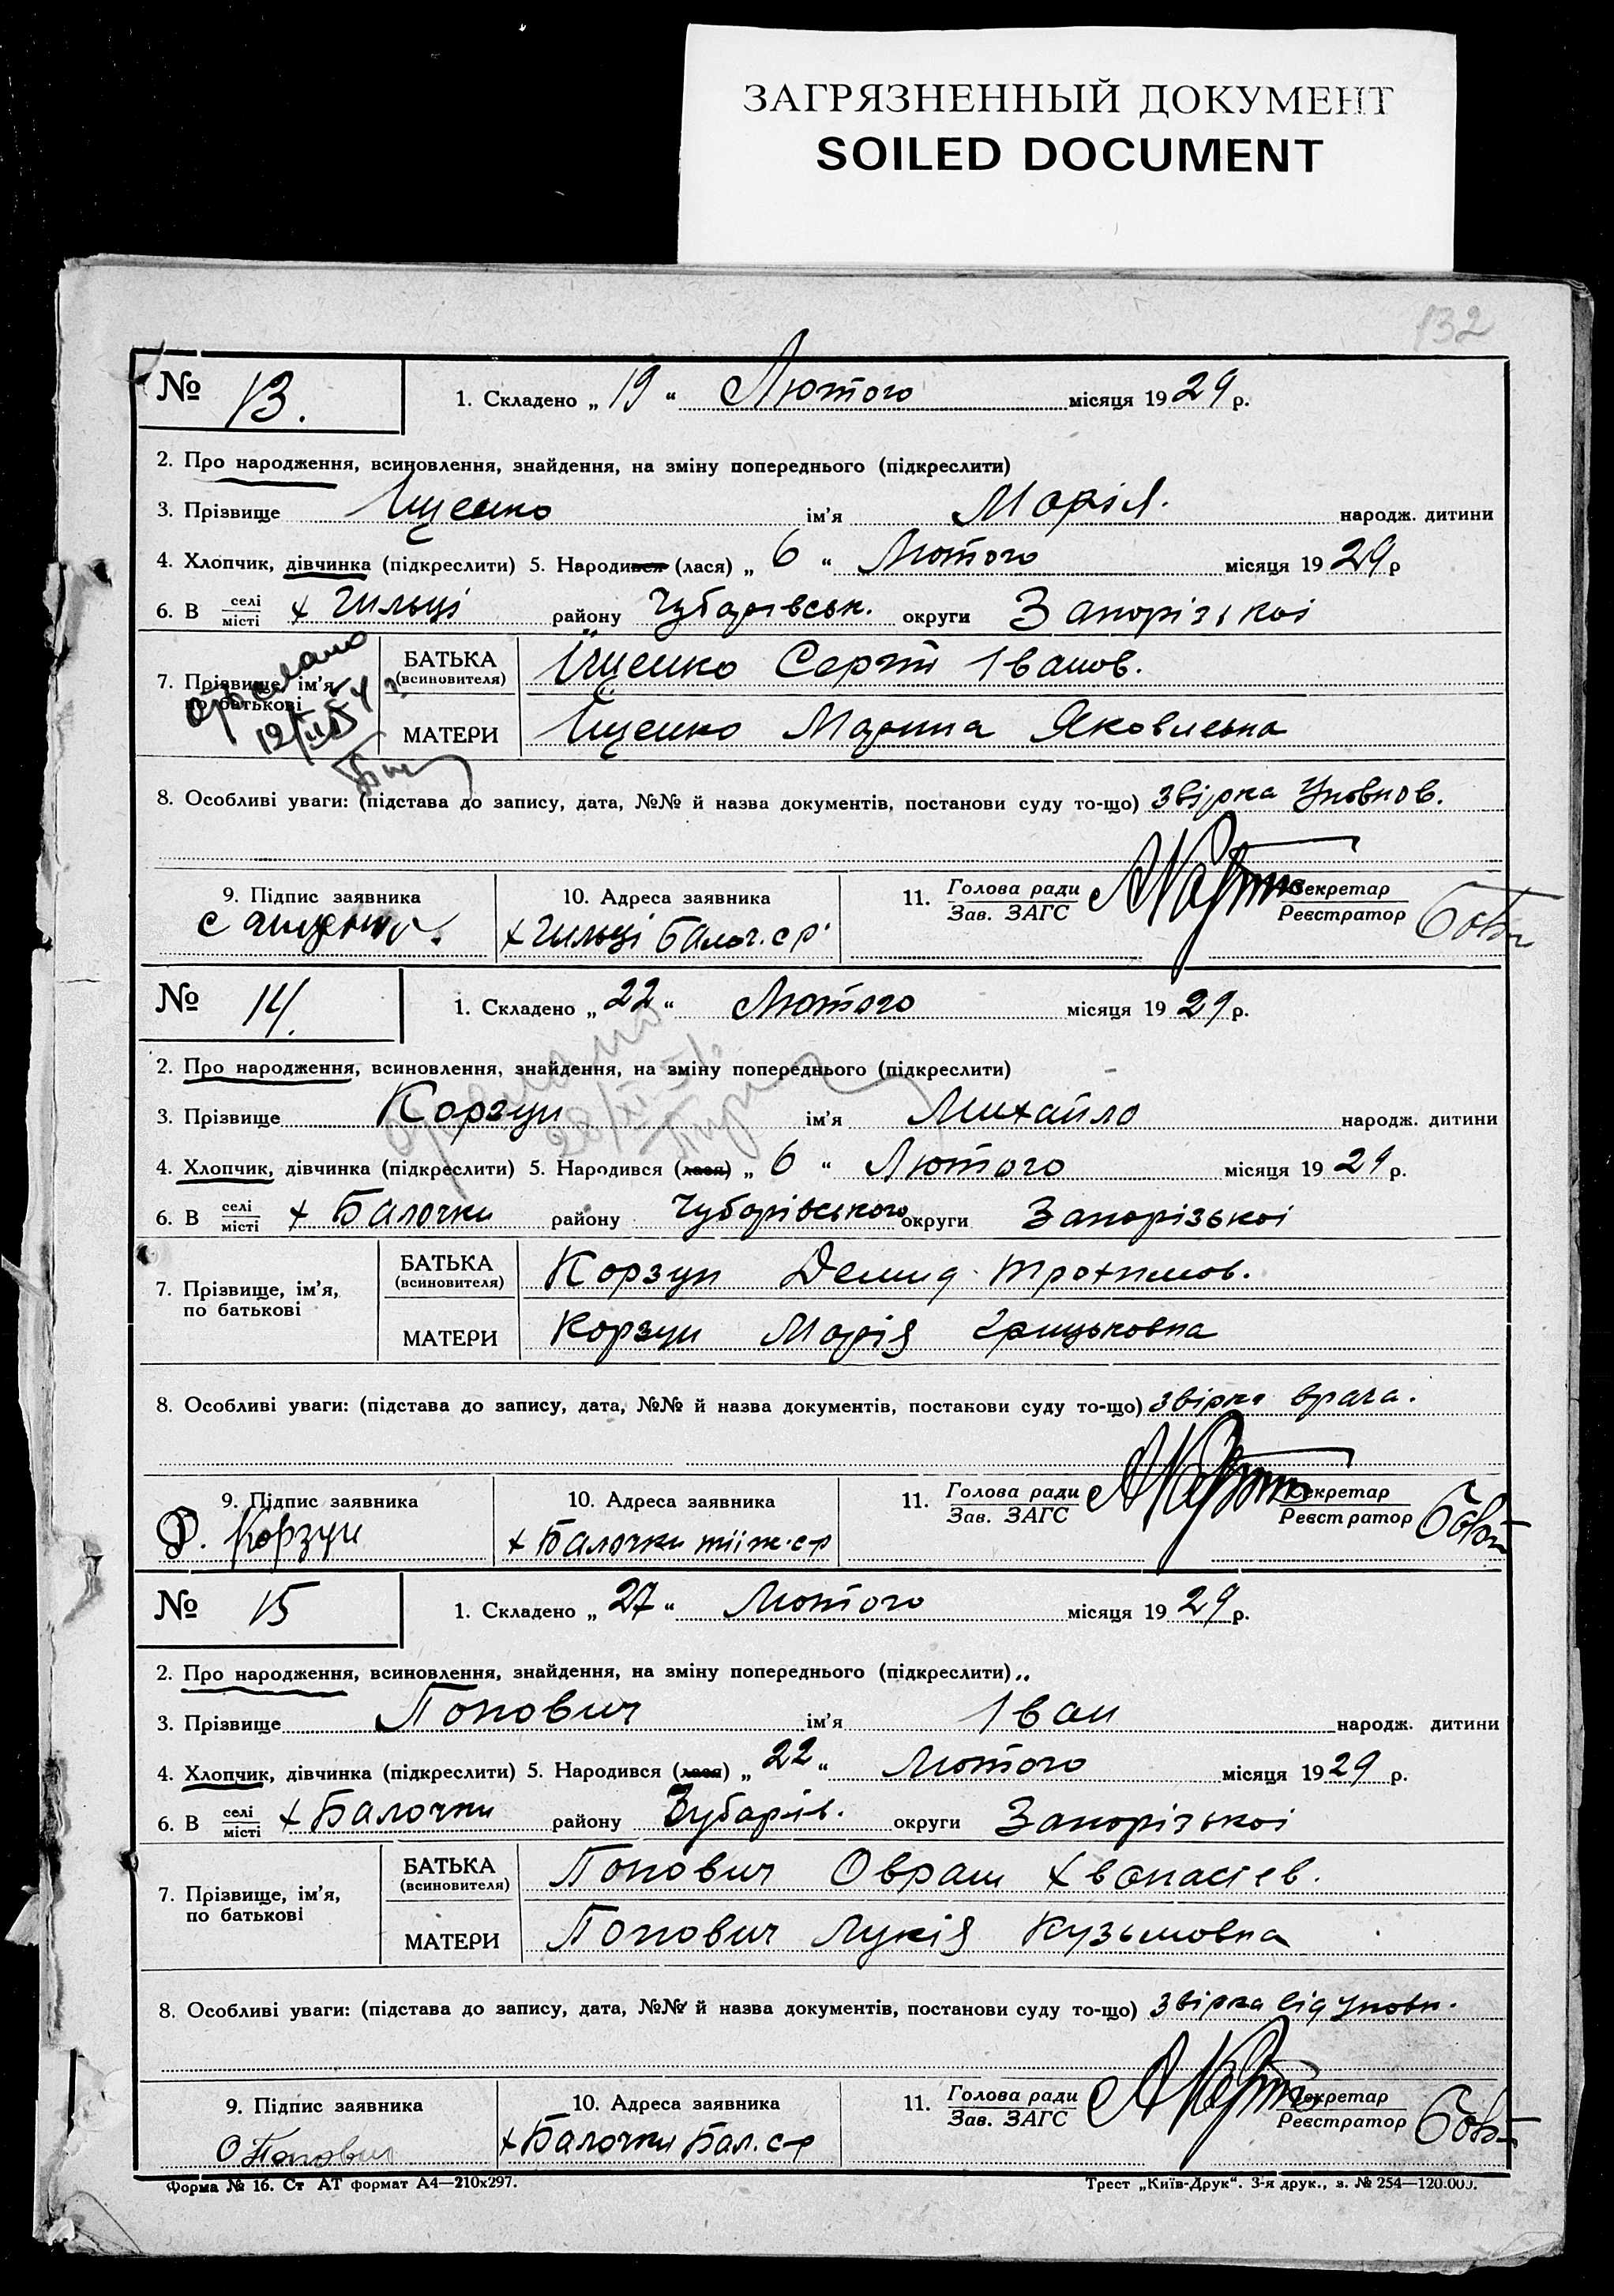 ЗАГРЯЗНЕННЫЙ ДОКУМЕНТ
SOILED DOCUMENT
132
№ 13. 1. Складено „ 19 “ Лютого місяця 1929 р.
2. Про народження, всиновлення, знайдення, на зміну попереднього (підкреслити)
3. Прізвище Іщенко ім’я Марія. народж. дитини
4. Хлопчик, дівчинка (підкреслити) 5. Народився (лася) „ 6 “ Лютого місяця 1929 р
6. В селі місті х Гильці району Чубарівськ. округи Запорізькоі
7. Прізвище, ім’я, по батькові
БАТЬКА (всиновителя) Іщенко Сергій Іванов.
МАТЕРИ Іщенко Марина Яковлевна
8. Особливі уваги: (підстава до запису, дата, №№ й назва документів, постанови суду то-що) звірка Уповнов.
9. Підпис заявника 10. Адреса заявника 11. Голова ради Зав. ЗАГС Секретар Реєстратор
х Гильці Балоч. с р.
№ 14. 1. Складено „ 22 “ Лютого місяця 1929 р.
2. Про народження, всиновлення, знайдення, на зміну попереднього (підкреслити)
3. Прізвище Корзун ім’я Михайло народж. дитини
4. Хлопчик, дівчинка (підкреслити) 5. Народився (лася) „ 6 “ Лютого місяця 1929 р.
6. В селі місті х Балочки району Чубарівського округи Запорізькоі
7. Прізвище, ім’я, по батькові
БАТЬКА (всиновителя) Корзун Демид Трохимов.
МАТЕРИ Корзун Марія Грицьковна
8. Особливі уваги: (підстава до запису, дата, №№ й назва документів, постанови суду то-що) звірка врача.
9. Підпис заявника 10. Адреса заявника 11. Голова ради Зав. ЗАГС Секретар Реєстратор
Д. Корзун х Балочки тіїж. с-р
№ 15 1. Складено „ 27 “ Лютого місяця 1929 р.
2. Про народження, всиновлення, знайдення, на зміну попереднього (підкреслити)
3. Прізвище Попович ім’я Іван народж. дитини
4. Хлопчик, дівчинка (підкреслити) 5. Народився (лася) „ 22 “ Лютого місяця 1929 р.
6. В селі місті х Балочки району Чубарів. округи Запорізькоі
7. Прізвище, ім’я, по батькові
БАТЬКА (всиновителя) Попович Оврам Хванасієв.
МАТЕРИ Попович Лукія Кузьмовна
8. Особливі уваги: (підстава до запису, дата, №№ й назва документів, постанови суду то-що) звірка від Уповн.
9. Підпис заявника 10. Адреса заявника 11. Голова ради Зав. ЗАГС Секретар Реєстратор
О Попович х Балочки Бал. с-р
Форма № 16. Ст АТ формат А4—210х297. Трест „Київ-Друк“. 3-я друк., з. № 254—120.000.